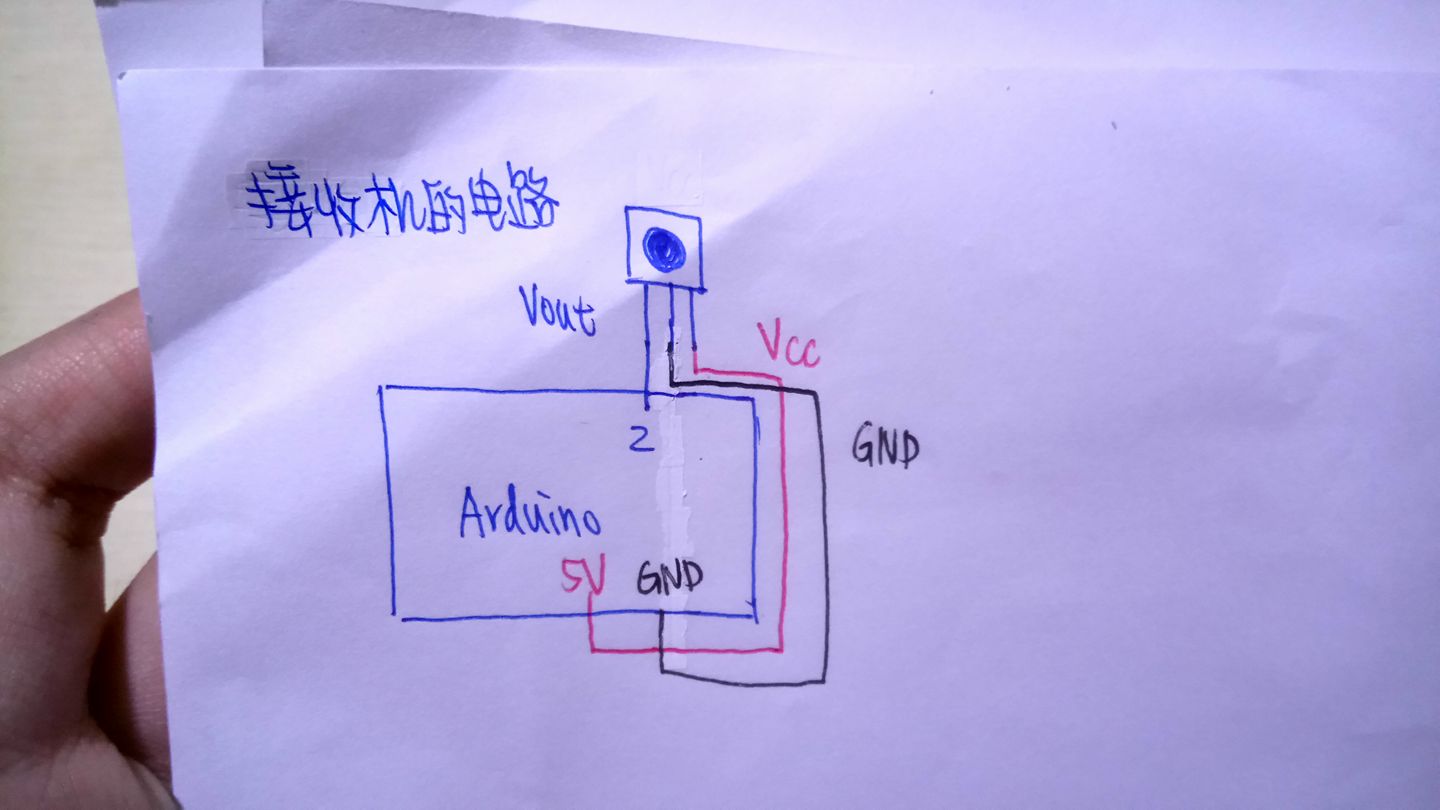 接收机的电路
Vout
Vcc
2
GND
Arduino
5V GND